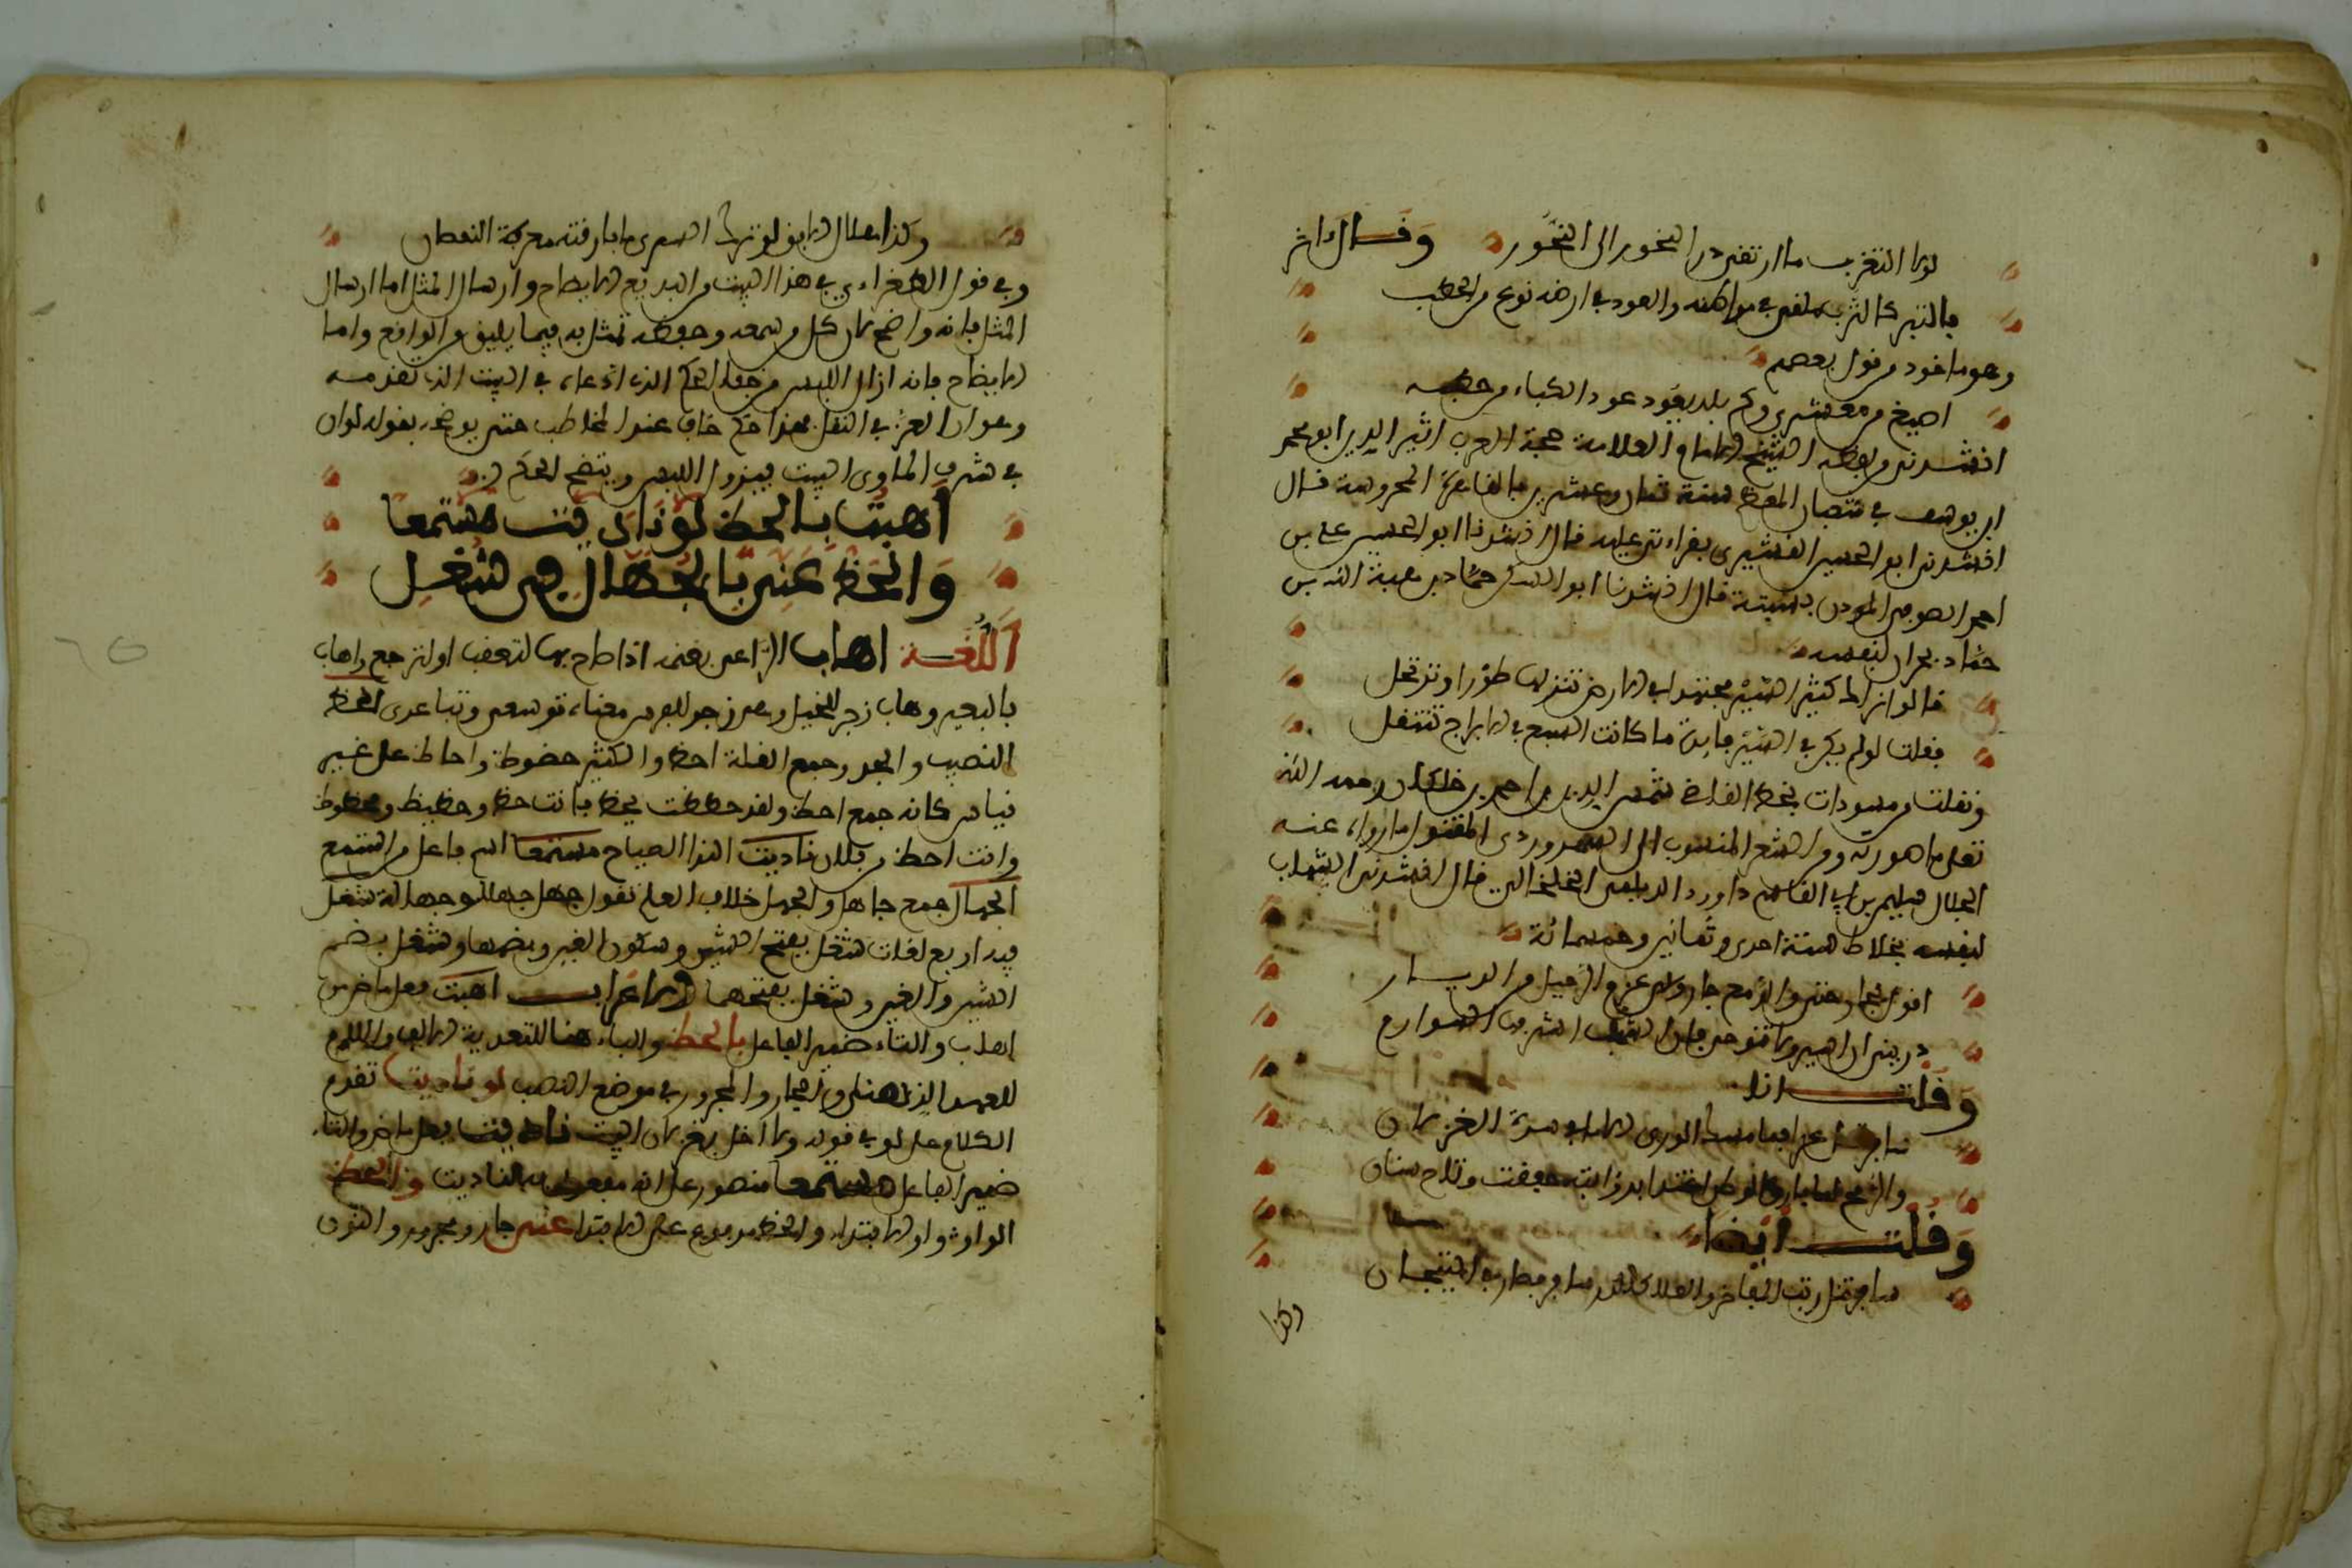 لولا التغرب ما ارتقى در البحور الى النحور وقال اخر
بالتبر كالترب ملقى في مواطنه والعود في ارضه نوع من الحطب
وهو ماخوذ من قول بعضهم
اصيغ من معشري وكم بلد يعود عود الكباء من حطبه
انشدني من لفظه الشيخ الامام العلامة حجة العرب اثير الدين ابو محمد
ابن يوسف في شعبان المعظم سنة ثمان وعشرين بالقاهرة المحروسة قال
انشدني ابو الحسين القشيري بقراءتي عليه قال انشدنا ابو الحسين علي بن
احمد الصوفي المؤدن بسبتة قال انشدنا ابو الثناء حماد بن هبة الله بن
حماد الحراني لنفسه
قالوا نراك كثير السير مجتهدا في الارض تنزلها طورا وترتحل
فقلت لو لم يكن في السير فايدة ما كانت السبع في الابراج تنتقل
ونقلت من مسودات بخط القاضي شمس الدين بن احمد بن خلكان رحمه الله
تعلى ما صورته ومن الشعر المنسوب الى السهروردي المقتول ما رواه عنه
الجلال سليم بن ابي القاسم داوود الديلمي الخلخالي قال انشدني الشهاب
لنفسه بخلاط سنة احدى وثمانين وخمسمائة
اقول لجارتي والدمع جار ولي عزم الرحيل من الديار
دريني ان اسير ولا تنوحي فان الشهب اشرفها السواري
وقلت انا
وقلت ايضا
سافر تنل رتب المفاخر والعلا كالدر سافر فصار في التيجان
وكذا
وكذا هلال الافق لو ترك السرى ما فارقته معرة النقصان
وفي قول الطغراءي في هذا البيت من البديع الايضاح وارسال المثل اما ارسال
المثل فانه واضح لان كل من سمعه وحفظه تمثل به فيما يليق من الوافع واما
الايضاح فانه ازال اللبس من خفاء الحكم الذي ادعاه في البيت الذي تقدمه
وهو ان العز في النقل فهذا حكم خاف عند المخاطب حتى يوضحه بقوله لو ان
في شرف الماوى البيت فيزول اللبس ويتضح الحكم
اهبت بالحظ لو ناديت مستمعا
والحظ عني بالجهال في شغل
اللغة اهاب الراعي بغنمه اذا صاح بها لتقف او لترجع واهاب
بالبعير وهاب زجر للخيل وهي زجر للفرس معناه توسعي وتباعدي الحظ
النصيب والجد وجمع القلة احظ والكثير حظوظ واحاظ على غير
قياس كانه جمع احظ ولقد حظظت بحظ فانت حظ وحظيظ ومحظوظ
وانت احظ من فلان ناديت النداء الصياح مستمعا اسم فاعل من استمع
الجهال جمع جاهل والجهل خلاف العلم تقول جهل جهلا وجهالة شغل
فيه اربع لغات شغل بفتح الشين وسكون الغين وبضمها وشغل بضم
الشين والغين وشغل بفتحهما الاعراب اهبت فعل ماض من
اهاب والتاء ضمير الفاعل بالحظ والباء هنا للتعدية الالف واللام
للعهد الذهني والجار والمجرور في موضع النصب لو ناديت تقدم
الكلام على لو في قوله ولا اخل بغزلان البيت ناديت فعل ماض والتاء
ضمير الفاعل مستمعا منصوب على انه مفعول به لناديت والحظ
الواو واو الابتداء والحظ مرفوع على الابتداء عني جار ومجرور والنون